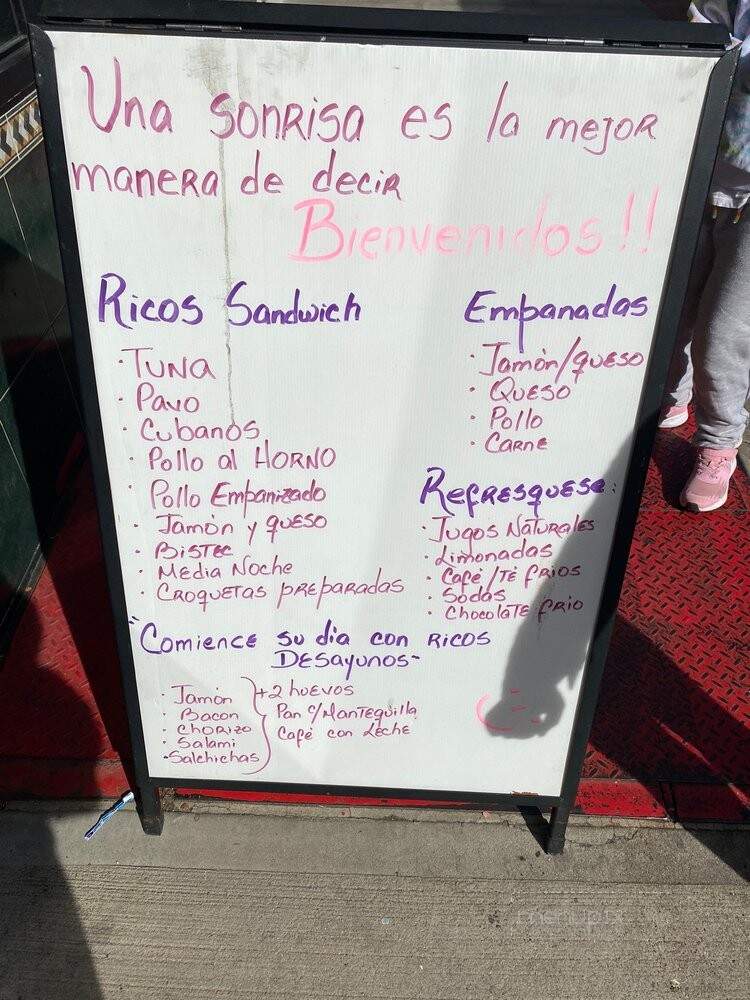 Una sonrisa es la mejor
manera de decir
Bienvenidos!!
Ricos Sandwich
· Tuna
· Pavo
· Cubanos
· Pollo al Horno
· Pollo Empanizado
· Jamón y queso
· Bistec
· Media Noche
· Croquetas preparadas
Empanadas
· Jamón/queso
· Queso
· Pollo
· Carne
Refresquese:
· Jugos Naturales
· Limonadas
· Café/Té frios
· Sodas
· Chocolate frio
"Comience su dia con ricos
Desayunos-
· Jamón
· Bacon
· Chorizo
· Salami
· Salchichas
+2 huevos
Pan c/Mantequilla
Café con Leche
menupix